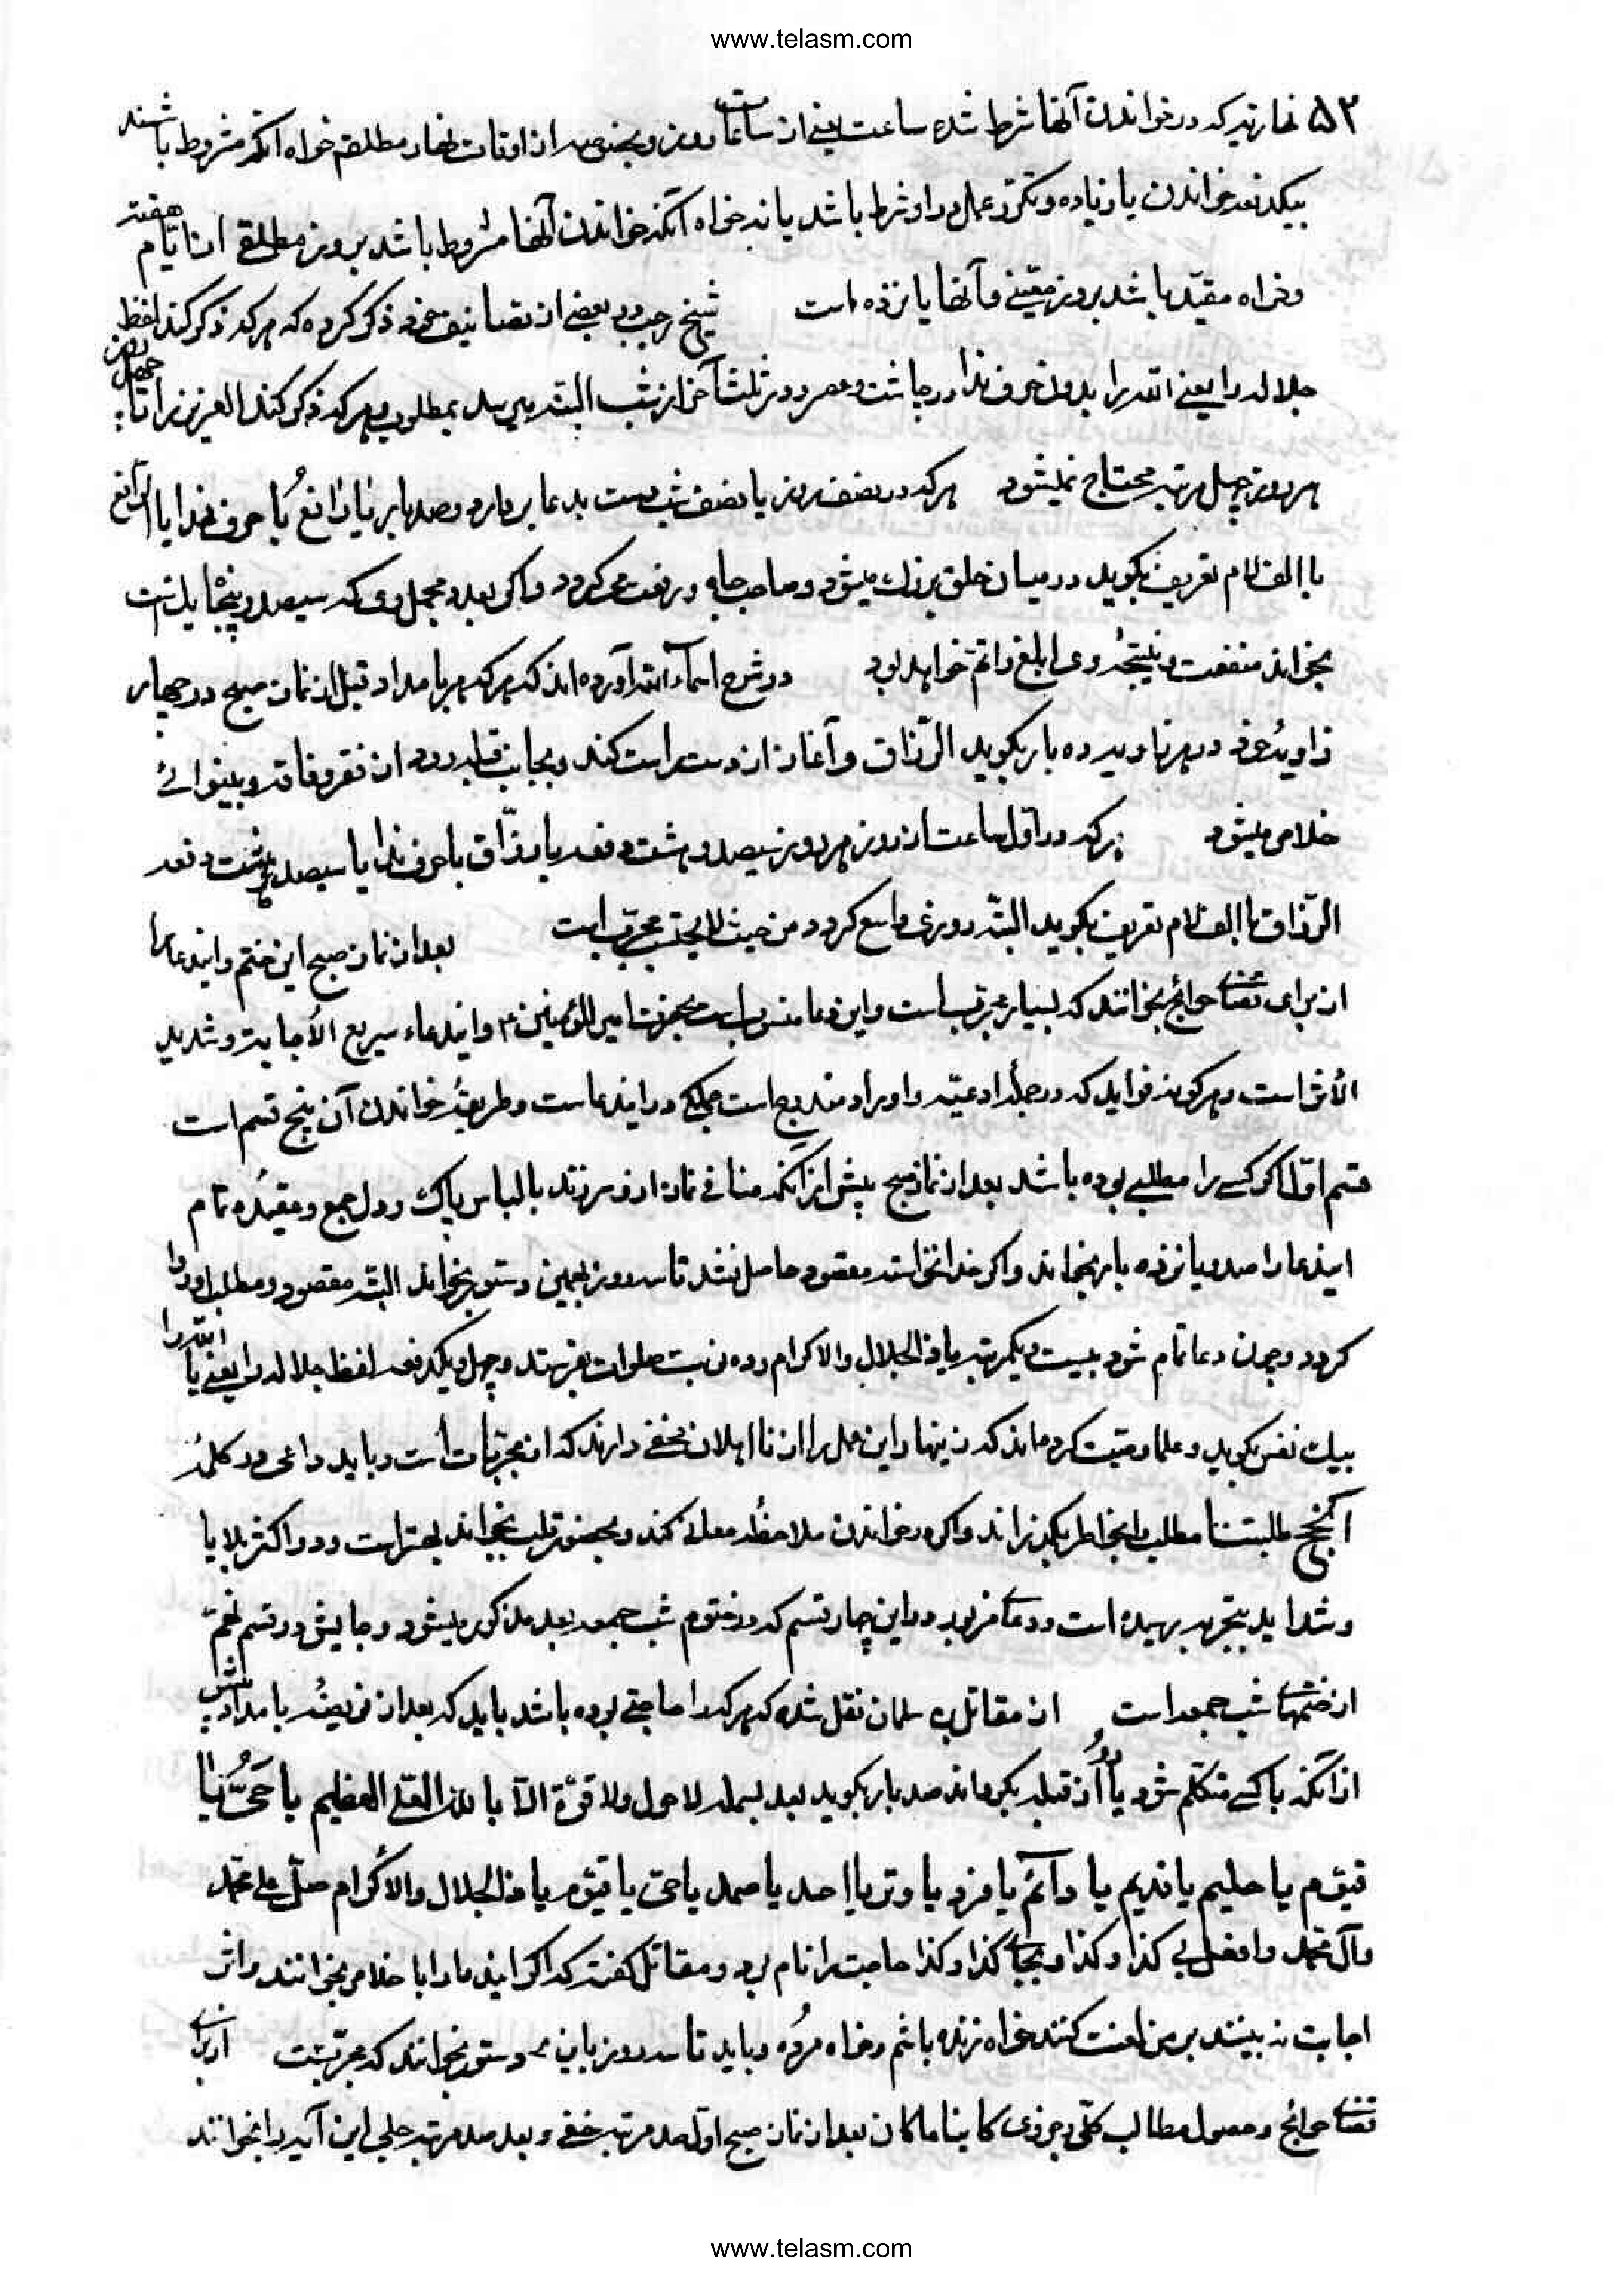 www.telasm.com
۵۲ نهاریه که در خواندن آنها شرط شده ساعت یعنی از ساعات روز و بخصوصه از اوقات نهار مطلقه خواه آنکه مشروط باشند
بیکدفعه خواندن یا زیاده و تکرر عمل در او شرط باشد یا نه خواه آنکه خواندن آنها مشروط باشد بروز مطلقی از ایام هفته
و خواه مقید باشد بروز معینی و آنها پانزده است شیخ رجب در بعضی از تصانیف خود ذکر کرده که هر که ذکر کند لفظ
جلاله را یعنی الله را بدون حرف ندا در چاشت و عصر و در ثلث آخر از شب البته میرسد بمطلوب و هر که ذکر کند العزیز را تا چهل روز
هر روز چهل مرتبه محتاج نمیشود هر که در نصف روز یا نصف شب دست بدعا بردارد و صد بار یا رافع با حرف ندا یا الرافع
با الف لام تعریف بگوید در میان خلق بزرك میشود و صاحب جاه و رفعت میگردد و اگر بعدد مجمل وی که سیصد و پنجاه یك است
بخواند منفعت و نتیجهٔ وی ابلغ و اتم خواهد بود در شرح اسماء الله آورده اند که هر که هر بامداد قبل از نماز صبح در چهار
زاویهٔ غرفه در هر زاویه ده بار بگوید الرزاق و آغاز از دست راست کند و بجانب قبله رود از فقر و فاقه و بینوائی
خلاص میشود هر که در اول ساعت از روز هر روز سیصد و هشت دفعه یا رزاق با حرف ندا یا سیصد و هشت دفعه
الرزاق با الف لام تعریف بگوید البته روزی واسع گردد من حیث لا یحتسب مجرب است بعد از نماز صبح این ختم و ایندعا را
از برای قضای حوائج بخوانند که بسیار مجرب است و این دعا منسوب است بحضرت امیر المؤمنین ع و ایندعاء سریع الأجابة و شدید
الأثر است و هر گونه فواید که در جلد ادعیه و اوراد مندرج است جملگی در ایندعاست و طریقهٔ خواندن آن پنج قسم است
قسم اول اگر کسی را مطلبی بوده باشد بعد از نماز صبح پیش از آنکه منافی نماز از او سر زند با لباس پاك و دل جمع و عقیدهٔ تمام
ایندعا را صد و پانزده بار بخواند و اگر خدانخواسته مقصود حاصل نشد تا سه روز بهمین دستور بخواند البته مقصود و مطلب او روا
گردد و چون دعا تمام شود بیست و یکمرتبه یا ذا الجلال والاکرام و ده نوبت صلوات بفرستد و چهل و یکدفعه لفظ جلاله را یعنی یا الله را
بیك نفس بگوید و علما وصیت کرده اند که زینهار این عمل را از نااهلان مخفی دارند که از مجربات است و باید داعی در کلمهٔ
أنجح طلبتنا مطلب را بخاطر بگذراند و اگر در خواندن ملاحظهٔ معانی کند و بحضور قلب بخواند بهتر است و در اکثر بلایا
و شداید بتجربه رسیده است و دعای مزبور در این چهار قسم که در ختوم شب جمعه بعد مذکور میشود و جایش در قسم نهم
از ختمهای شب جمعه است از مقاتل بن سلمان نقل شده که هر که را حاجتی بوده باشد باید که بعد از فریضهٔ بامداد پیش
از آنکه با کسی متکلم شود یا رو از قبله بگرداند صد بار بگوید بعد بسمله لا حول ولا قوة الا بالله العلی العظیم یا حی یا
قیوم یا حلیم یا قدیم یا دآئم یا فرد یا وتر یا احد یا صمد یا حی یا قیوم یا ذا الجلال والاکرام صل علی محمد
وآل محمد وافعل بی کذا وکذا و بجای کذا وکذا حاجت را نام برد و مقاتل گفته که اگر ایندعا را با خلاص بخوانند و اثر
اجابت نه بینند بر من لعنت کنند خواه زنده باشم و خواه مرده و باید تا سه روز باین دستور بخوانند که مجربست از برای
قضای حوائج و حصول مطالب کلی و جزوی کاینا ماکان بعد از نماز صبح اول صد مرتبه خفی و بعد صد مرتبه جلی این آیه را بخوانند
www.telasm.com